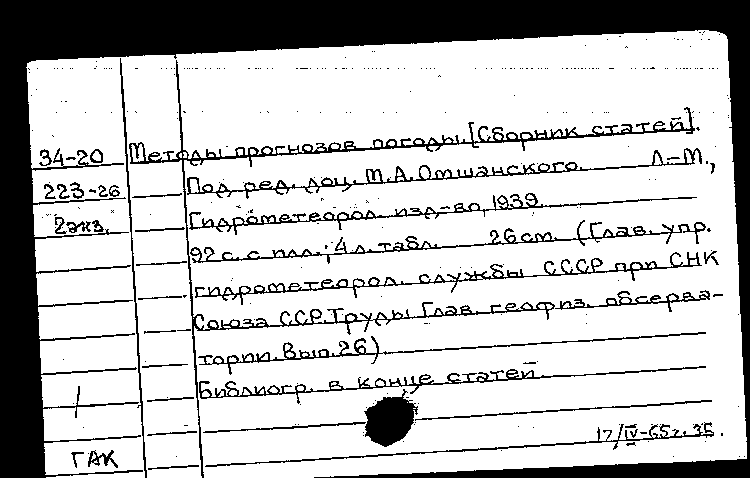 34-20 Методы прогнозов погоды. [Сборник статей].
223-26 Под ред. доц. М.А.Омшанского. Л.-М.,
2экз. Гидрометеорол. изд-во, 1939.
92 с. с илл.; 4 л. табл. 26 см. (Глав. упр.
гидрометеорол. службы СССР при СНК
Союза ССР. Труды Глав. геофиз. обсерва-
тории. Вып. 26).
Библиогр. в конце статей.
17/IV-65г. 35.
ГАК